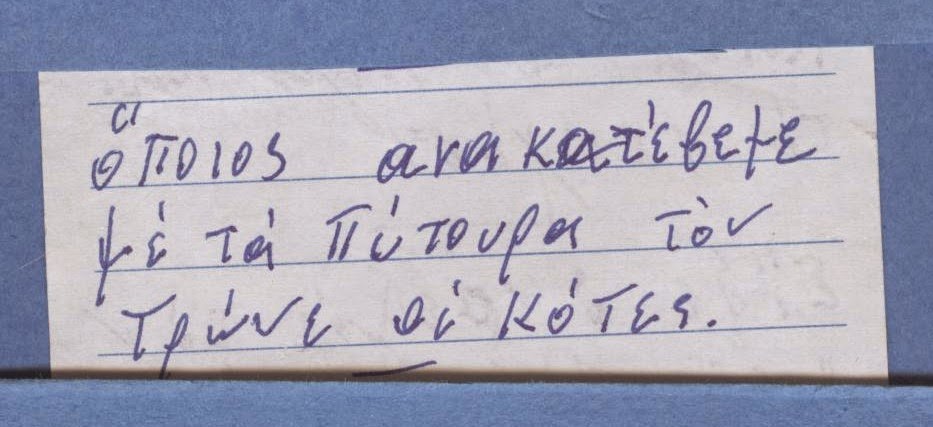 ὅποιος ανακατέβεμε
μέ τά πύτουρα τὸν
τρώνε οἱ κότες.